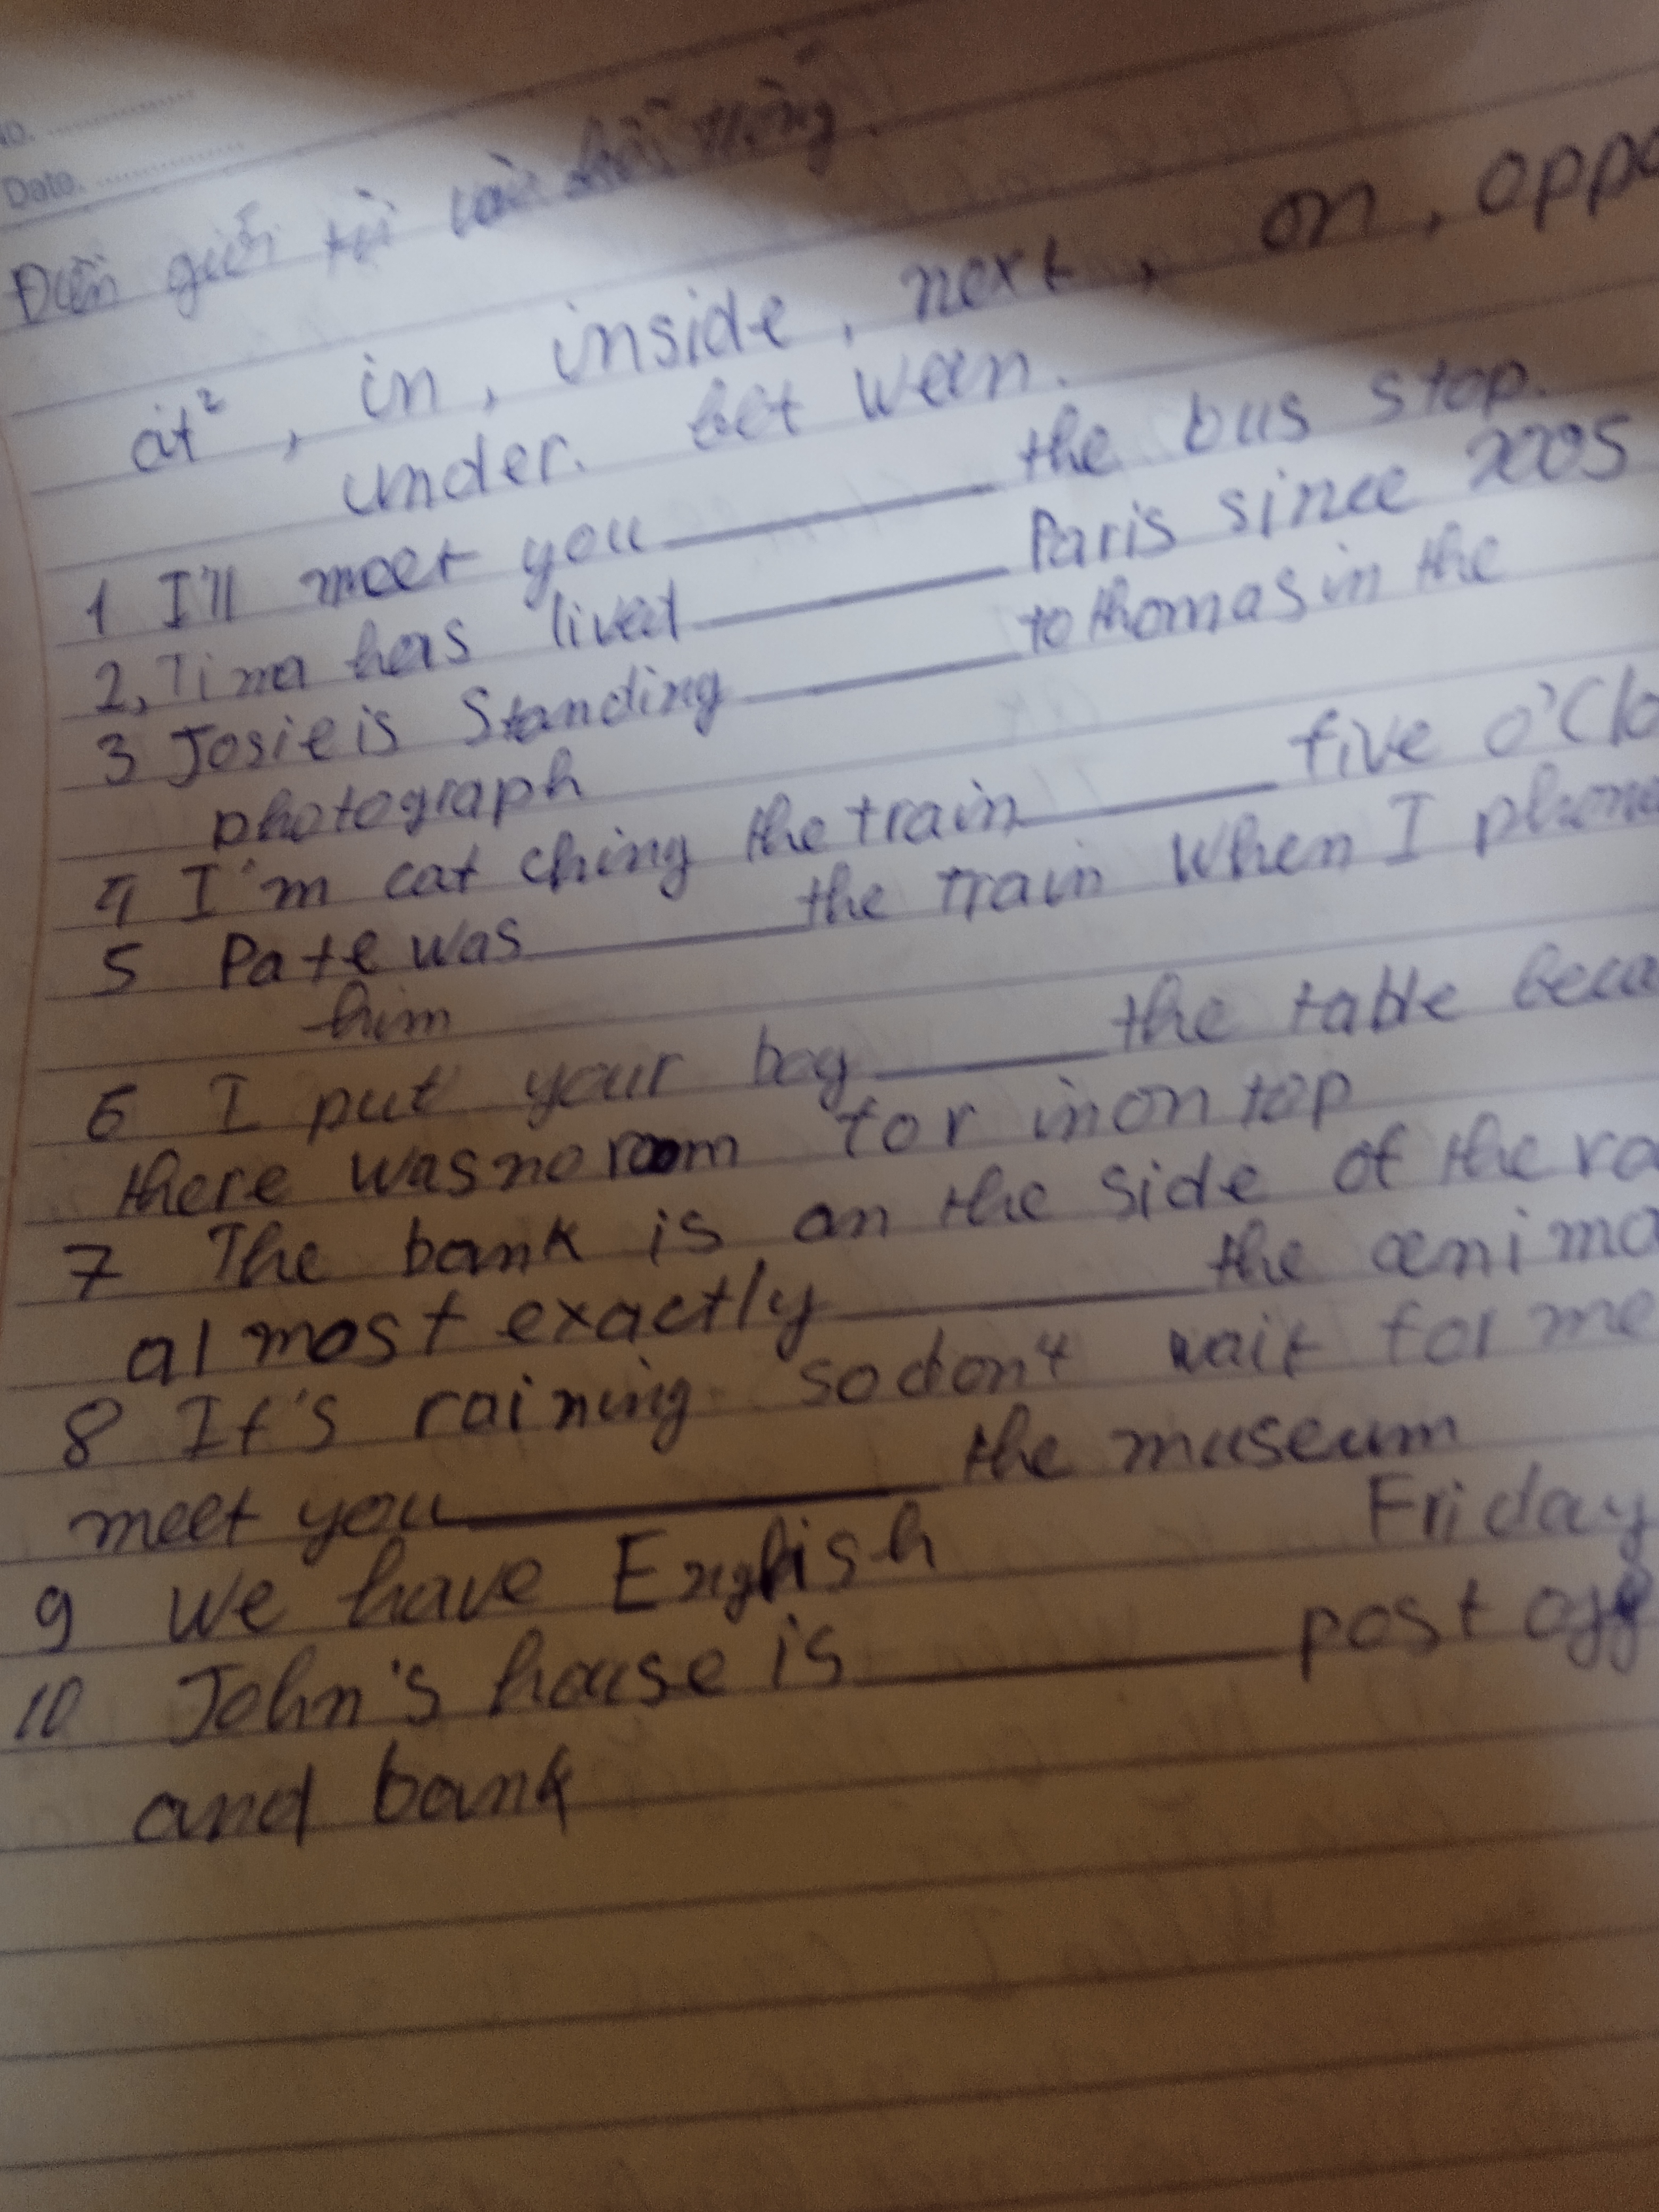 NO.
Date.
Điền giới từ vào chỗ trống.
at², in, inside, next, on, oppo
under. bet ween.
1 I'll meet you ______ the bus stop.
2, Tima has lived ______ Paris since 2005
3 Josie is Standing ______ to thomas in the
photograph
4 I'm cat ching the train ______ five o'Clo
5 Pate was ______ the train when I phone
him
6 I put your bag ______ the table beca
there was no room for in on top
7 The bank is on the side of the roa
al most exactly ______ the anima
8 It's raining so don't wait for me
meet you ______ the museum
9 We have English Friday
10 John's house is ______ post off
and bank